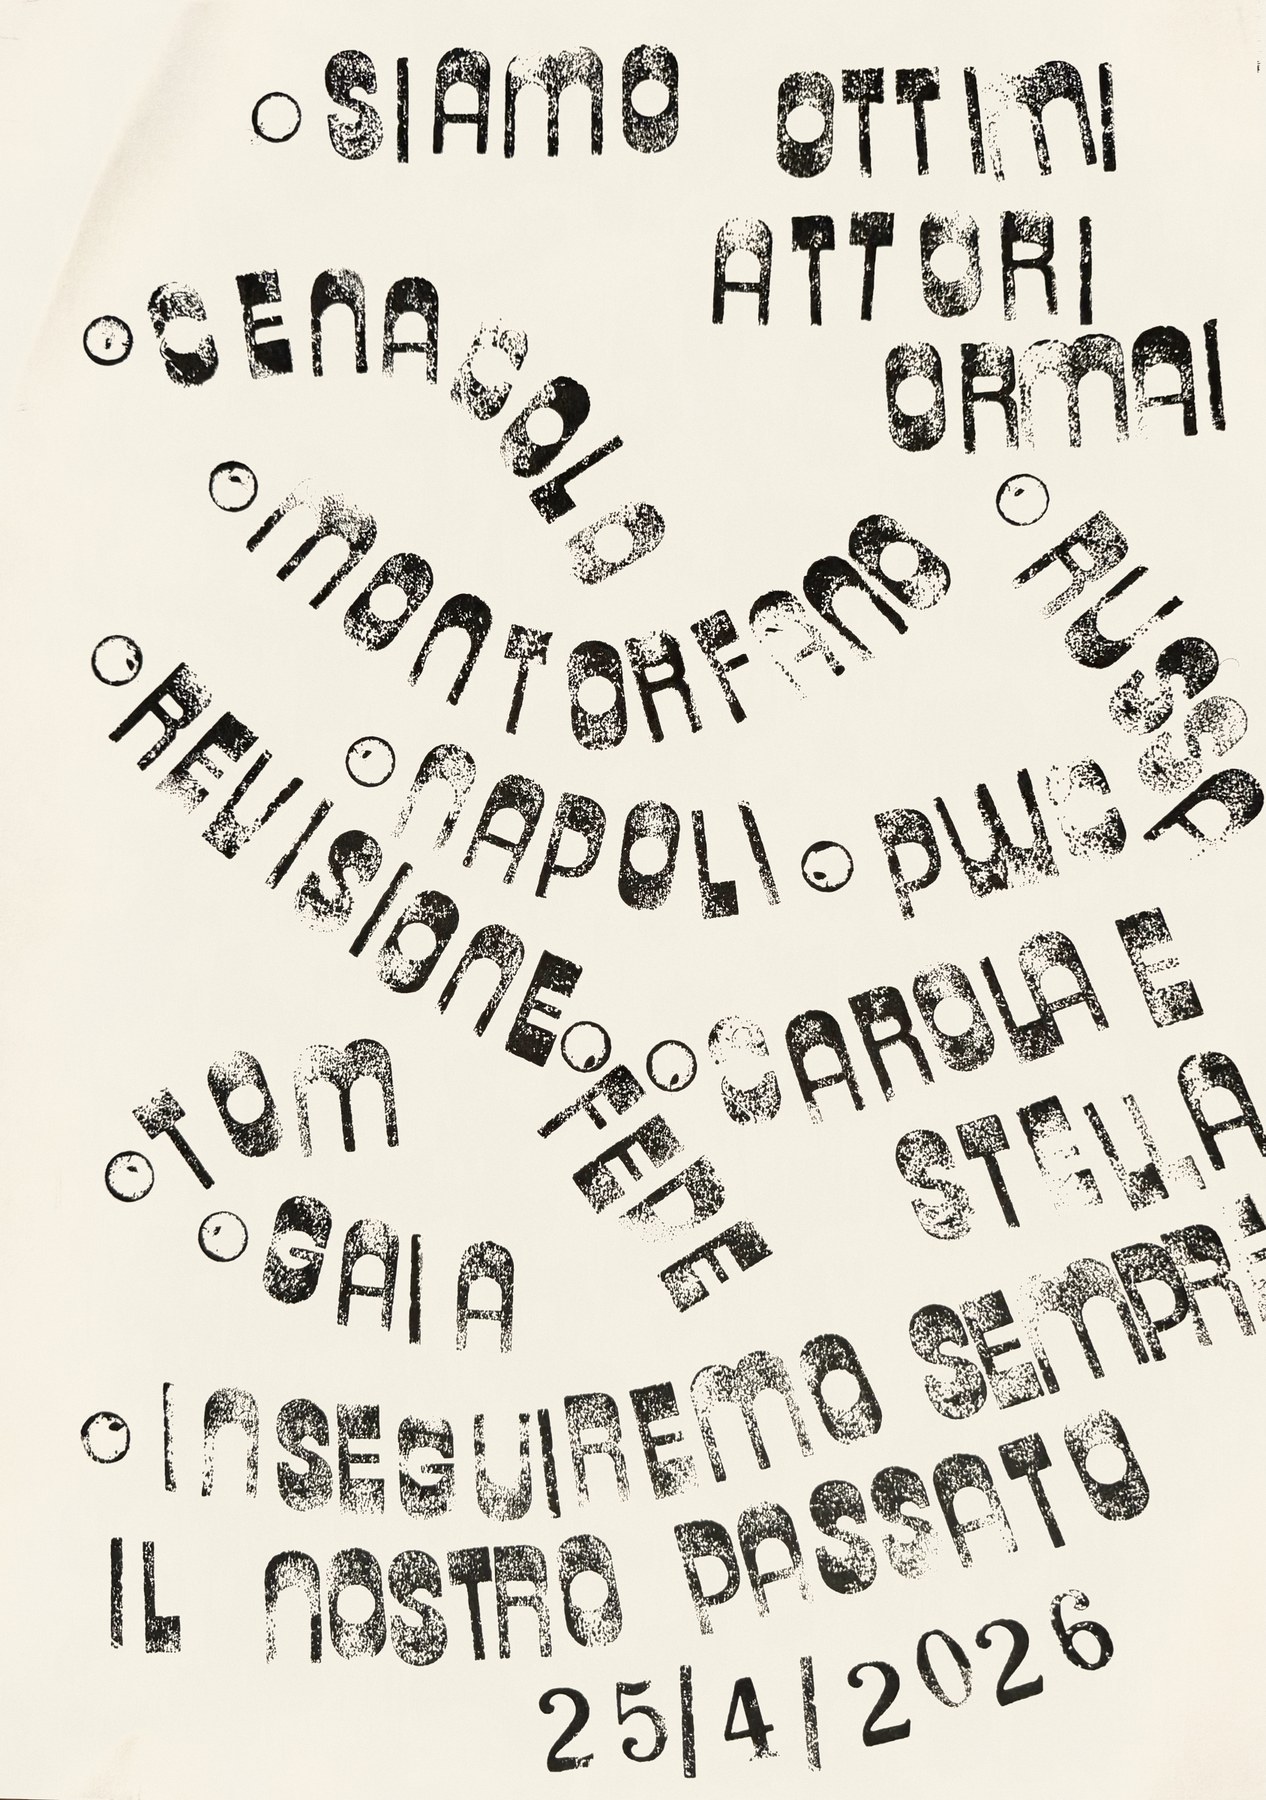 ○ SIAMO OTTIMI
ATTORI
ORMAI
○ CENACOLO
○ MONTORFANO
○ RUSSA
○ REVISIONE
○ NAPOLI
○ PWC
○ FEDE
○ CAROLA E
STELLA
○ TOM
○ GAIA
○ INSEGUIREMO SEMPRE
IL NOSTRO PASSATO
25/4/2026